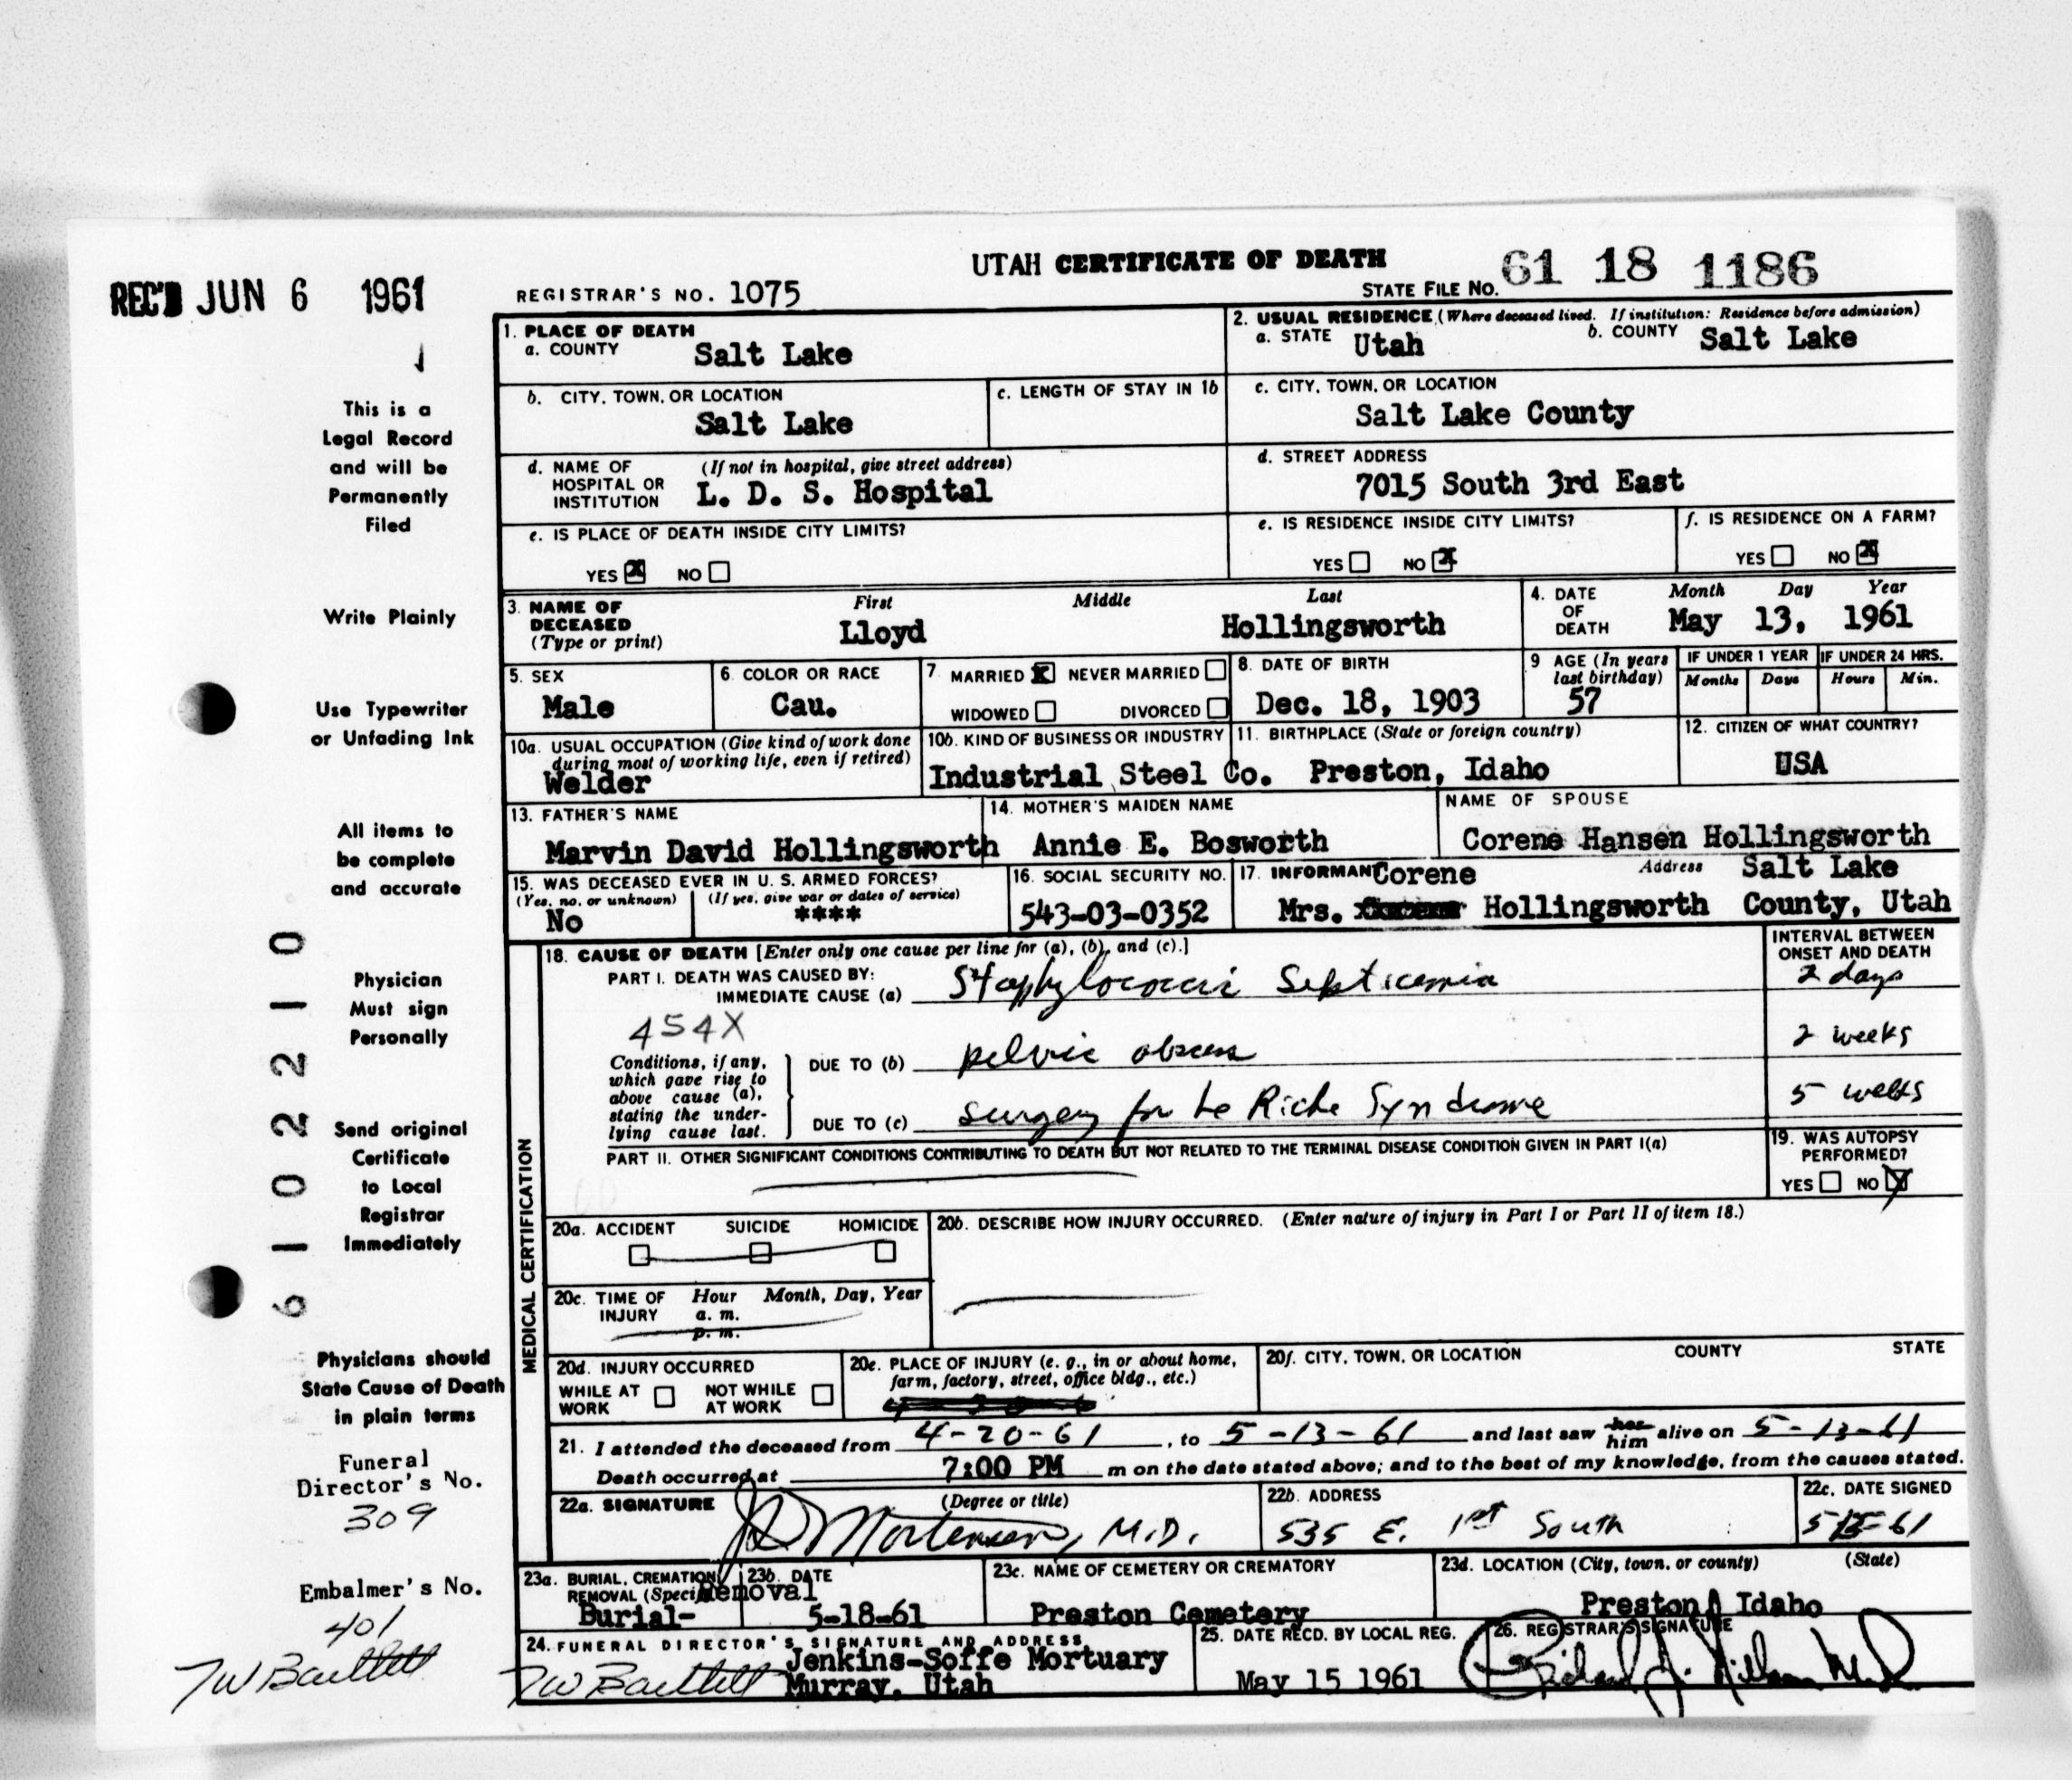 UTAH CERTIFICATE OF DEATH
REC'D JUN 6 1961
REGISTRAR'S NO. 1075
STATE FILE NO. 61 18 1186
This is a
Legal Record
and will be
Permanently
Filed
Write Plainly
Use Typewriter
or Unfading Ink
All items to
be complete
and accurate
Physician
Must sign
Personally
Send original
Certificate
to Local
Registrar
Immediately
Physicians should
State Cause of Death
in plain terms
Funeral
Director's No.
309
Embalmer's No.
401
TW Bartlett
6102210
1. PLACE OF DEATH
a. COUNTY Salt Lake
2. USUAL RESIDENCE (Where deceased lived. If institution: Residence before admission)
a. STATE Utah b. COUNTY Salt Lake
b. CITY, TOWN, OR LOCATION
Salt Lake
c. LENGTH OF STAY IN 1b
c. CITY, TOWN, OR LOCATION
Salt Lake County
d. NAME OF HOSPITAL OR INSTITUTION (If not in hospital, give street address)
L. D. S. Hospital
d. STREET ADDRESS
7015 South 3rd East
e. IS PLACE OF DEATH INSIDE CITY LIMITS?
YES X NO
e. IS RESIDENCE INSIDE CITY LIMITS?
YES NO X
f. IS RESIDENCE ON A FARM?
YES NO X
3. NAME OF DECEASED (Type or print)
First Middle Last
Lloyd Hollingsworth
4. DATE OF DEATH Month Day Year
May 13, 1961
5. SEX
Male
6. COLOR OR RACE
Cau.
7. MARRIED X NEVER MARRIED
WIDOWED DIVORCED
8. DATE OF BIRTH
Dec. 18, 1903
9 AGE (In years last birthday)
57
IF UNDER 1 YEAR IF UNDER 24 HRS.
Months Days Hours Min.
10a. USUAL OCCUPATION (Give kind of work done during most of working life, even if retired)
Welder
10b. KIND OF BUSINESS OR INDUSTRY
Industrial Steel Co.
11. BIRTHPLACE (State or foreign country)
Preston, Idaho
12. CITIZEN OF WHAT COUNTRY?
USA
13. FATHER'S NAME
Marvin David Hollingsworth
14. MOTHER'S MAIDEN NAME
Annie E. Bosworth
NAME OF SPOUSE
Corene Hansen Hollingsworth
15. WAS DECEASED EVER IN U. S. ARMED FORCES?
(Yes, no, or unknown) (If yes, give war or dates of service)
No ****
16. SOCIAL SECURITY NO.
543-03-0352
17. INFORMANT Corene Address Salt Lake
Mrs. Hollingsworth County, Utah
MEDICAL CERTIFICATION
18. CAUSE OF DEATH [Enter only one cause per line for (a), (b), and (c).]
INTERVAL BETWEEN ONSET AND DEATH
PART I. DEATH WAS CAUSED BY:
IMMEDIATE CAUSE (a) Staphylococci Septicemia 2 days
454X
Conditions, if any, which gave rise to above cause (a), stating the underlying cause last.
DUE TO (b) pelvic abscess 2 weeks
DUE TO (c) surgery for Le Riche Syndrome 5 weeks
PART II. OTHER SIGNIFICANT CONDITIONS CONTRIBUTING TO DEATH BUT NOT RELATED TO THE TERMINAL DISEASE CONDITION GIVEN IN PART I(a)
19. WAS AUTOPSY PERFORMED?
YES NO X
20a. ACCIDENT SUICIDE HOMICIDE
20b. DESCRIBE HOW INJURY OCCURRED. (Enter nature of injury in Part I or Part II of item 18.)
20c. TIME OF INJURY Hour Month, Day, Year
a. m.
p. m.
20d. INJURY OCCURRED
WHILE AT WORK NOT WHILE AT WORK
20e. PLACE OF INJURY (e. g., in or about home, farm, factory, street, office bldg., etc.)
20f. CITY, TOWN, OR LOCATION COUNTY STATE
21. I attended the deceased from 4-20-61, to 5-13-61 and last saw her him alive on 5-13-61
Death occurred at 7:00 PM m on the date stated above; and to the best of my knowledge, from the causes stated.
22a. SIGNATURE (Degree or title)
Mortensen, M.D.
22b. ADDRESS
535 E. 1st South
22c. DATE SIGNED
5-15-61
23a. BURIAL, CREMATION, REMOVAL (Specify)
Burial-Removal
23b. DATE
5-18-61
23c. NAME OF CEMETERY OR CREMATORY
Preston Cemetery
23d. LOCATION (City, town, or county) (State)
Preston, Idaho
24. FUNERAL DIRECTOR'S SIGNATURE AND ADDRESS
TW Bartlett Jenkins-Soffe Mortuary
Murray, Utah
25. DATE RECD. BY LOCAL REG.
May 15 1961
26. REGISTRAR'S SIGNATURE
Richard J. Nilsson M.D.